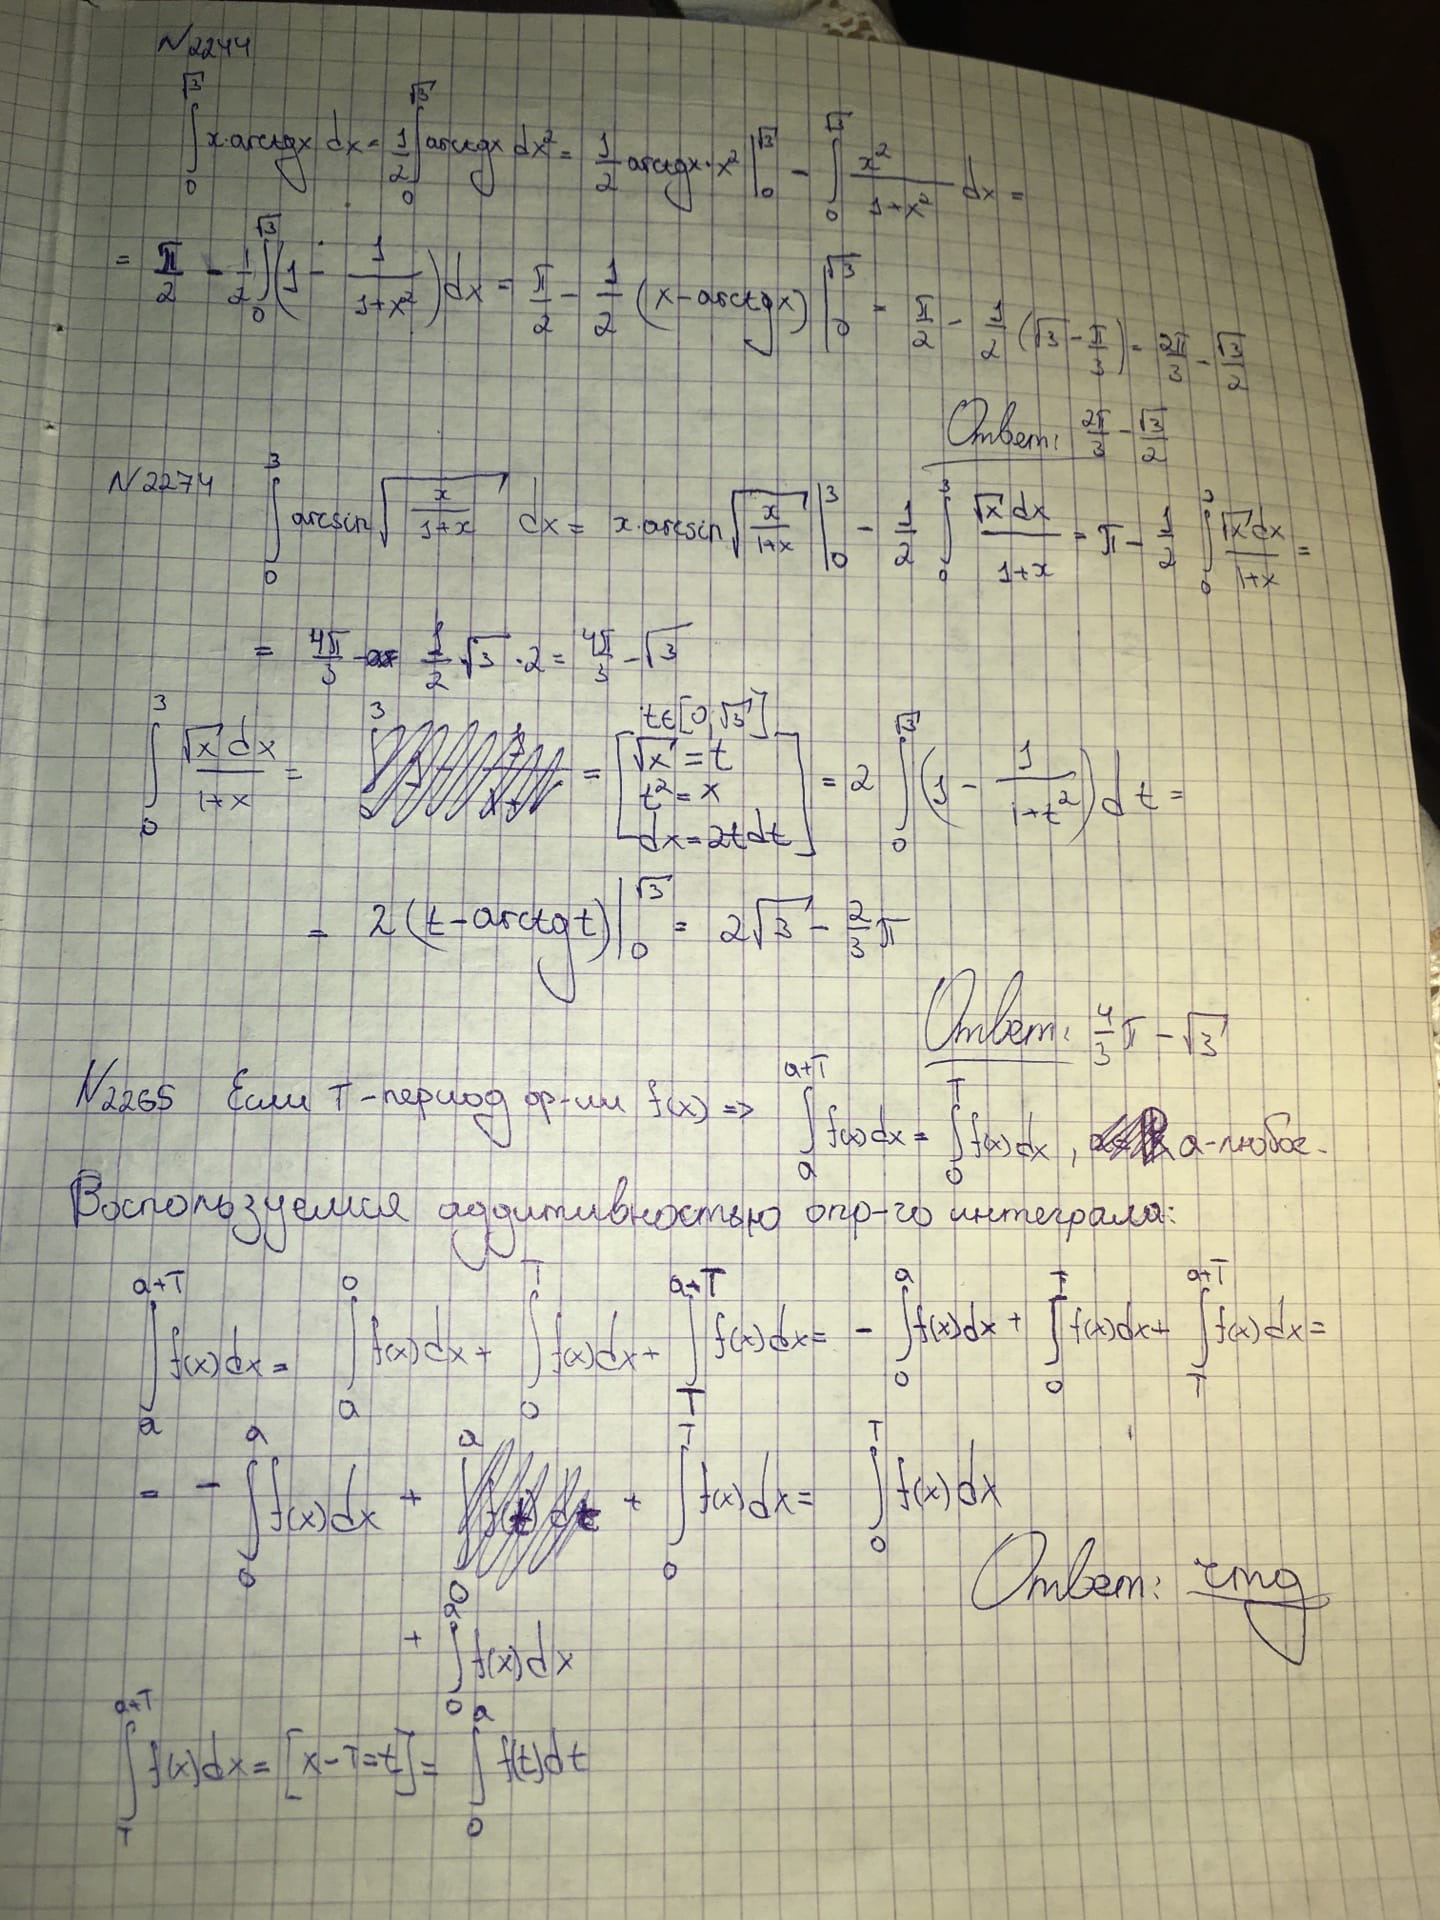 N2244
∫₀^√3 x·arctgx dx = 1/2 ∫₀^√3 arctgx dx² = 1/2 arctgx·x² |₀^√3 − ∫₀^√3 x²/(1+x²) dx =
= π/2 − 1/2 ∫₀^√3 (1 − 1/(1+x²)) dx = π/2 − 1/2 (x − arctgx) |₀^√3 = π/2 − 1/2 (√3 − π/3) = 2π/3 − √3/2
Ответ: 2π/3 − √3/2
N2274 ∫₀³ arcsin √(x/(1+x)) dx = x·arcsin √(x/(1+x)) |₀³ − 1/2 ∫₀³ √x dx/(1+x) = π − 1/2 ∫₀³ √x dx/(1+x) =
= 4π/3 − 1/2·√3·2 = 4π/3 − √3
∫₀³ √x dx/(1+x) = = [t∈[0,√3] √x = t t² = x dx = 2tdt] = 2 ∫₀^√3 (1 − 1/(1+t²)) dt =
= 2(t − arctgt) |₀^√3 = 2√3 − 2/3 π
Ответ: 4/3 π − √3
N2265 Если T-период ф-ии f(x) => ∫ₐ^(a+T) f(x)dx = ∫₀^T f(x)dx, a-любое.
Воспользуемся аддитивностью опр-го интеграла:
∫ₐ^(a+T) f(x)dx = ∫ₐ^0 f(x)dx + ∫₀^T f(x)dx + ∫_T^(a+T) f(x)dx = − ∫₀^a f(x)dx + ∫₀^T f(x)dx + ∫_T^(a+T) f(x)dx =
= − ∫₀^a f(x)dx + + ∫₀^T f(x)dx = ∫₀^T f(x)dx
Ответ: чтд
+ ∫₀^a f(x)dx
∫_T^(a+T) f(x)dx = [x−T=t] = ∫₀^a f(t)dt